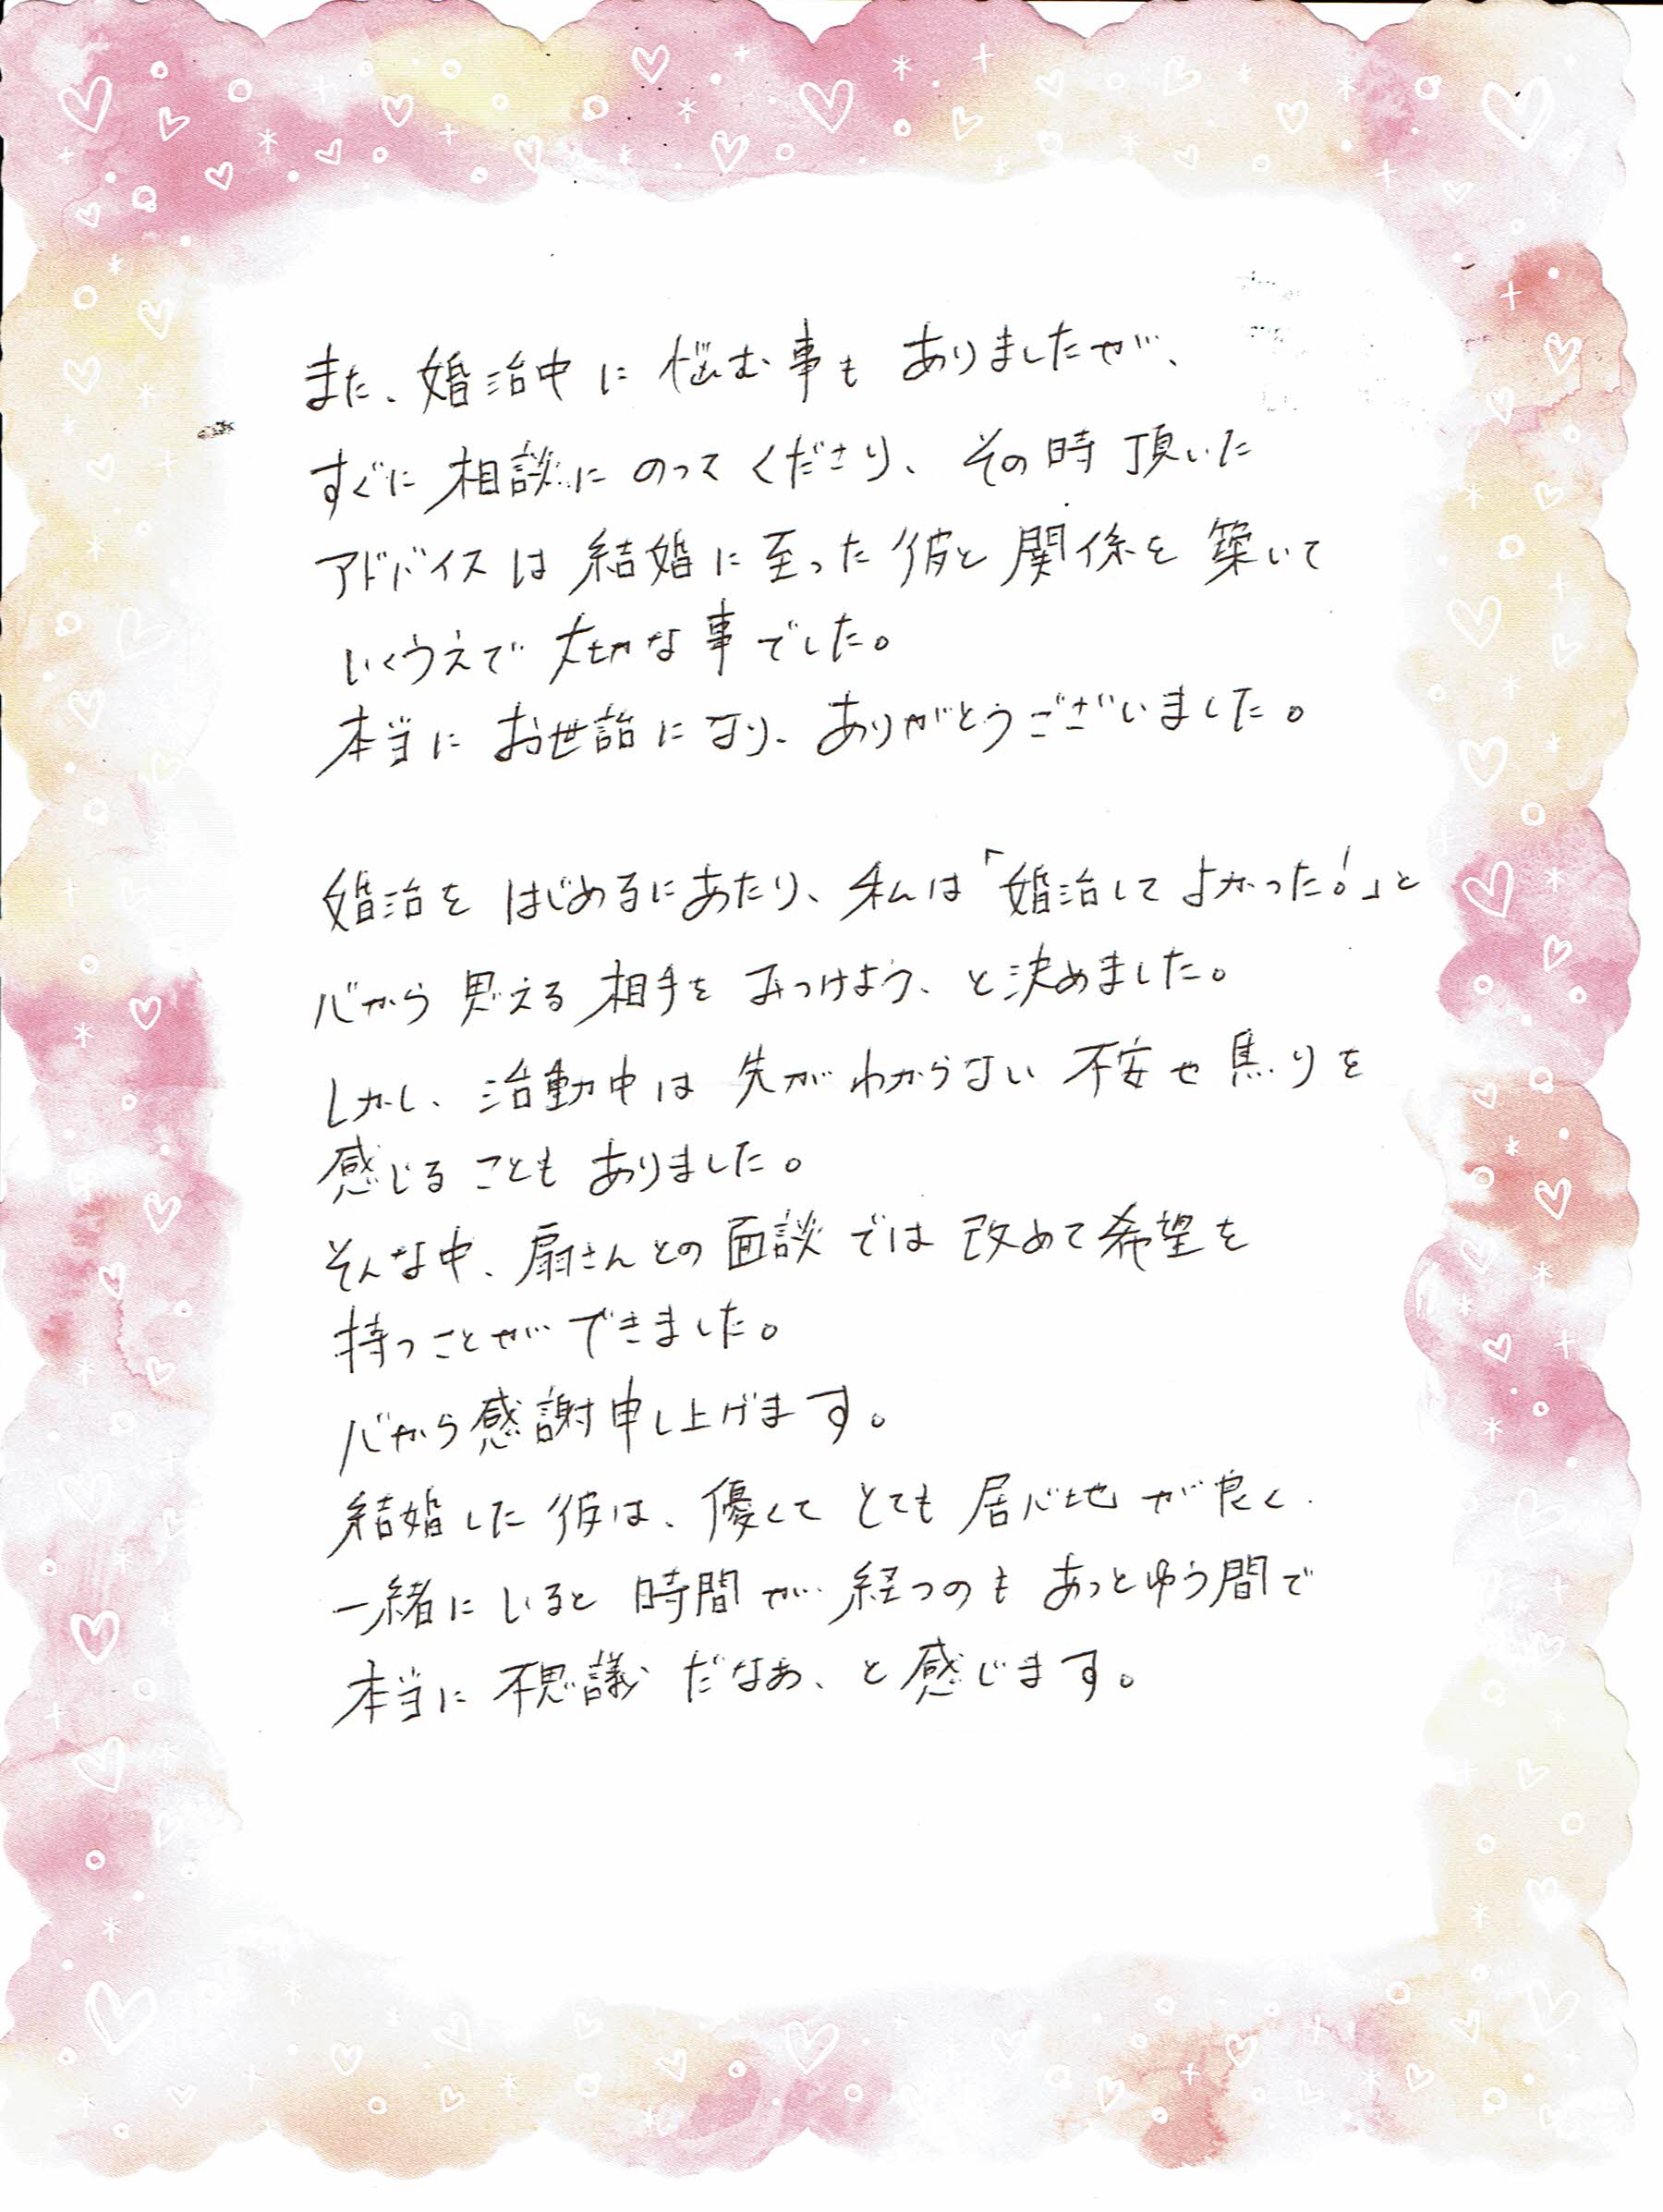 また、婚活中に悩む事もありましたが、
すぐに相談にのってくださり、その時頂いた
アドバイスは結婚に至った彼と関係を築いて
いくうえで大切な事でした。
本当にお世話になり、ありがとうございました。
婚活をはじめるにあたり、私は「婚活してよかった!」と
心から思える相手をみつけよう、と決めました。
しかし、活動中は先がわからない不安や焦りを
感じることもありました。
そんな中、扇さんとの面談では改めて希望を
持つことができました。
心から感謝申し上げます。
結婚した彼は、優くてとても居心地が良く
一緒にいると時間が経つのもあっとゆう間で
本当に不思議だなあ、と感じます。